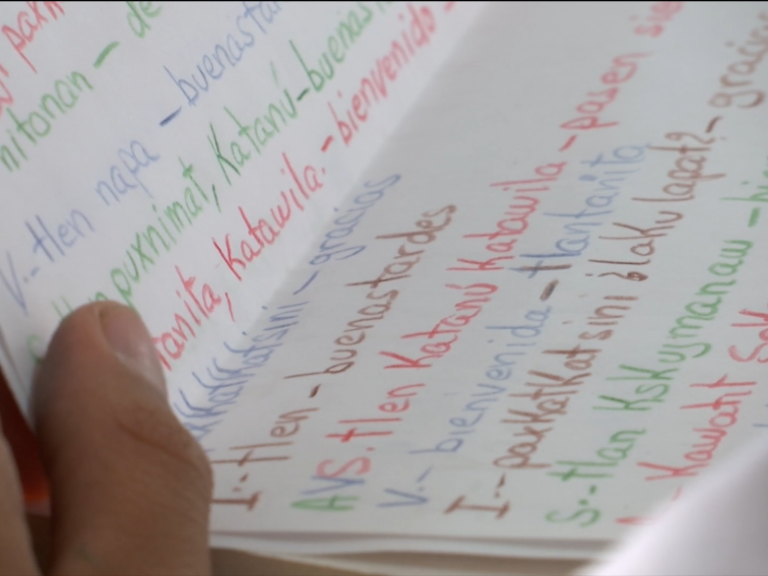 nitonan - de
V.- tlen napa - buenasta
puxnimat, Katanú - buenas
tanita, Katawila. - bienvenido -
paxKatKatsini - gracias
I.- tlen - buenastardes
AVS. tlen Katanú Katawila - pasen sie
V.- bienvenida - tlantañita
I.- paxKatKatsini ¿laKulapat? - gracias
S.- tlan KsKujmanaw - bie
Kawaht SoK